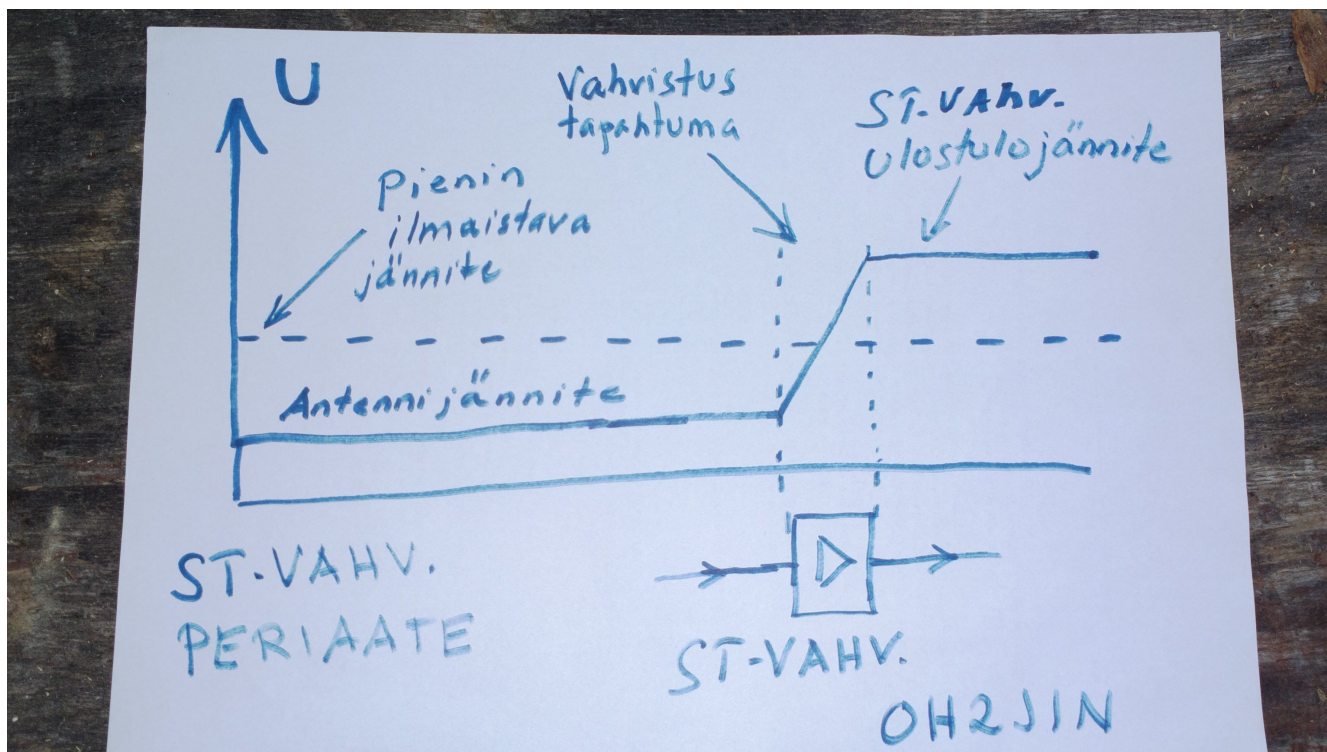 U
Vahvistus
tapahtuma
ST.VAHV.
ulostulojännite
Pienin
ilmaistava
jännite
Antennijännite
ST-VAHV.
PERIAATE
ST-VAHV.
OH2JIN